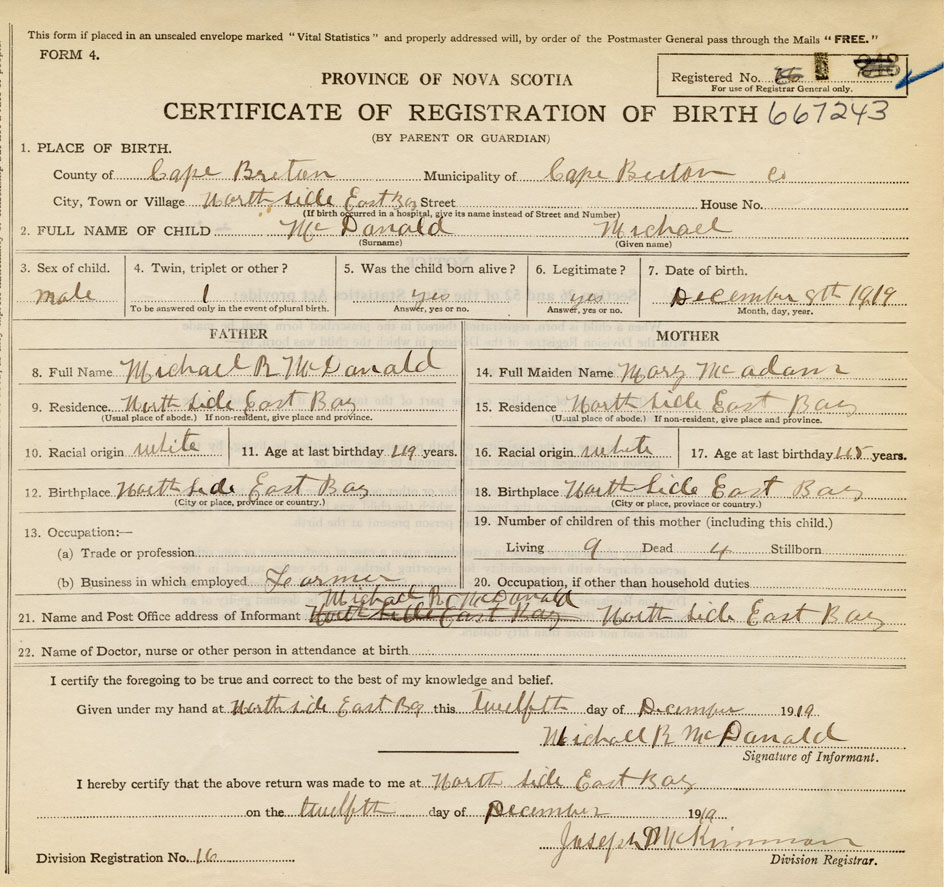 This form if placed in an unsealed envelope marked "Vital Statistics" and properly addressed will, by order of the Postmaster General pass through the Mails "FREE."
FORM 4.
PROVINCE OF NOVA SCOTIA
Registered No.
For use of Registrar General only.
CERTIFICATE OF REGISTRATION OF BIRTH 667243
(BY PARENT OR GUARDIAN)
1. PLACE OF BIRTH.
County of Cape Breton Municipality of Cape Breton Co
City, Town or Village North Side East Bay Street House No.
(If birth occurred in a hospital, give its name instead of Street and Number)
2. FULL NAME OF CHILD McDanald Michael
(Surname) (Given name)
3. Sex of child. 4. Twin, triplet or other? 5. Was the child born alive? 6. Legitimate? 7. Date of birth.
male 1 yes yes December 8th 1919
To be answered only in the event of plural birth. Answer, yes or no. Answer, yes or no. Month, day, year.
FATHER MOTHER
8. Full Name Michael R McDanald 14. Full Maiden Name Mary McAdam
9. Residence North Side East Bay 15. Residence North Side East Bay
(Usual place of abode.) If non-resident, give place and province. (Usual place of abode.) If non-resident, give place and province.
10. Racial origin white 11. Age at last birthday 49 years. 16. Racial origin white 17. Age at last birthday 45 years.
12. Birthplace North Side East Bay 18. Birthplace North Side East Bay
(City or place, province or country.) (City or place, province or country.)
13. Occupation:— 19. Number of children of this mother (including this child.)
(a) Trade or profession Living 9 Dead 4 Stillborn
(b) Business in which employed Farmer 20. Occupation, if other than household duties
Michael R McDonald
21. Name and Post Office address of Informant North Side East Bay North Side East Bay
22. Name of Doctor, nurse or other person in attendance at birth
I certify the foregoing to be true and correct to the best of my knowledge and belief.
Given under my hand at North Side East Bay this twelfth day of December 1919
Michael R McDanald
Signature of Informant.
I hereby certify that the above return was made to me at North Side East Bay
on the twelfth day of December 1919
Joseph McKinnon
Division Registration No. 16 Division Registrar.